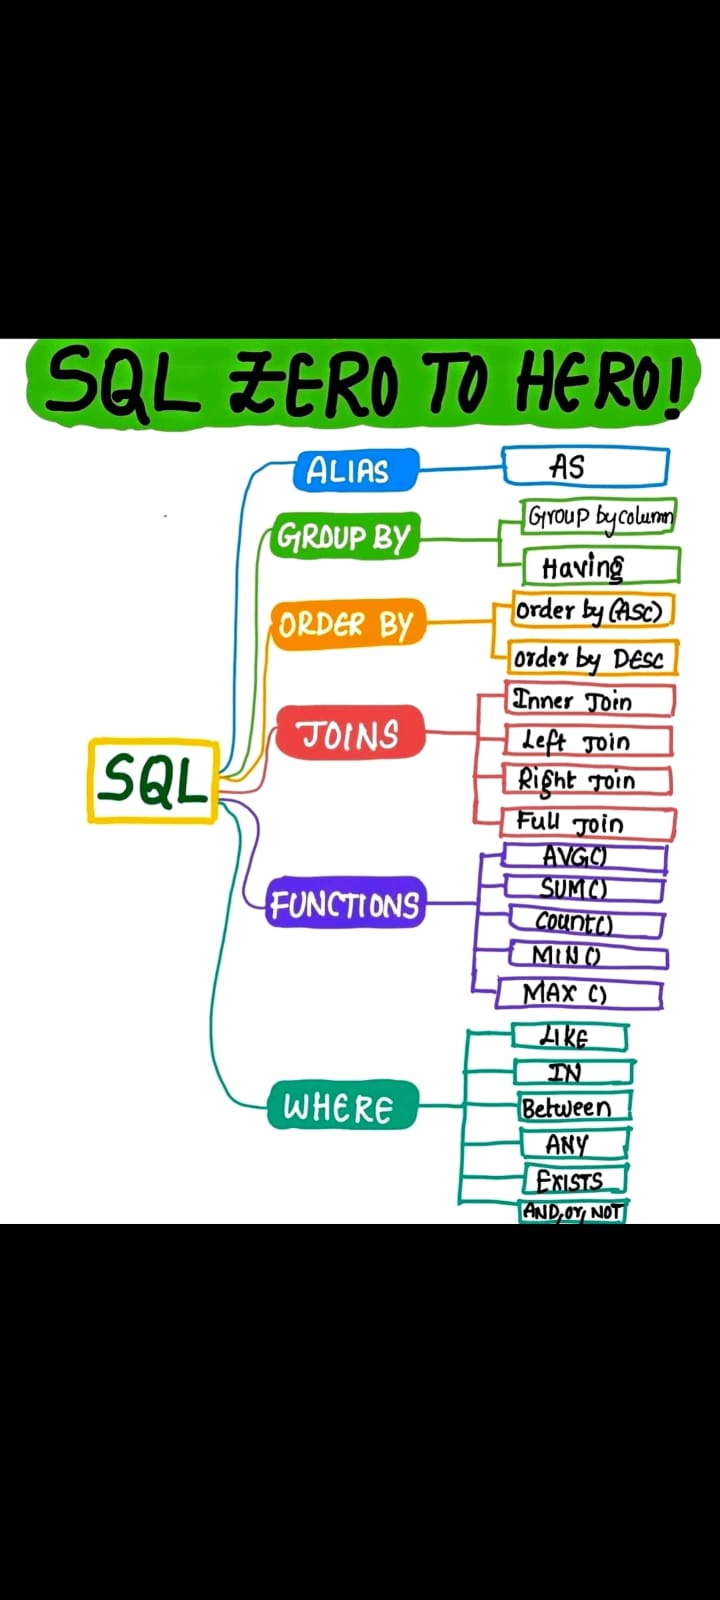 SQL ZERO TO HERO!
SQL
ALIAS
AS
GROUP BY
Group by column
Having
ORDER BY
Order by (ASC)
Order by DESC
JOINS
Inner Join
Left Join
Right Join
Full Join
FUNCTIONS
AVG()
SUM()
Count()
MIN()
MAX ()
WHERE
LIKE
IN
Between
ANY
EXISTS
AND, or, NOT